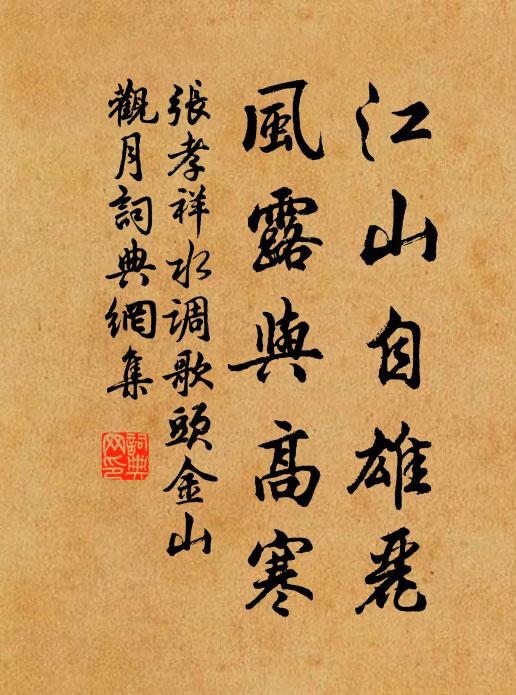 江山自雄麗
風露與高寒
張孝祥水调歌頭金山
觀月詞典網集
詞典
网印